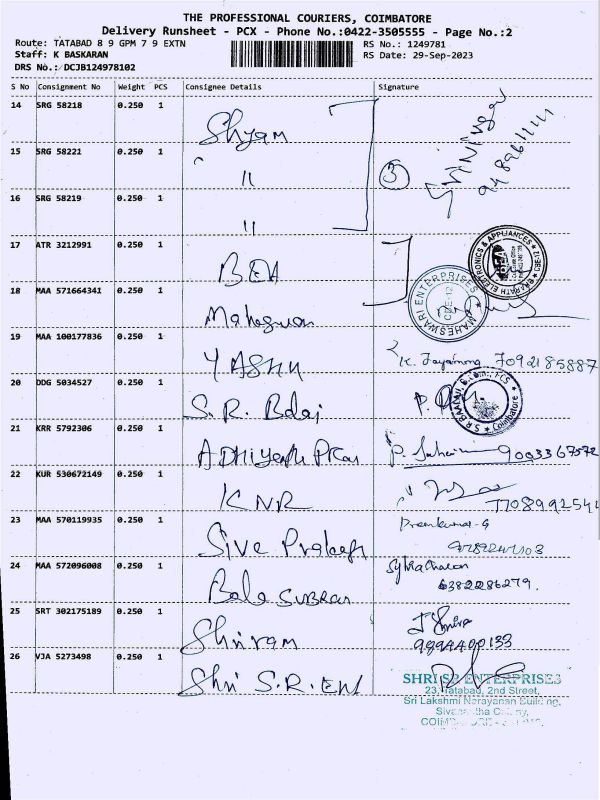 THE PROFESSIONAL COURIERS, COIMBATORE
Delivery Runsheet - PCX - Phone No.:0422-3505555 - Page No.:2
Route: TATABAD 8 9 GPM 7 9 EXTN
RS No.: 1249781
Staff: K BASKARAN
RS Date: 29-Sep-2023
DRS No.: DCJB124978102
S No Consignment No Weight PCS Consignee Details Signature
14 SRG 58218 0.250 1 Shyam
15 SRG 58221 0.250 1 "
16 SRG 58219 0.250 1 "
3
17 ATR 3212991 0.250 1 BEA
BHARATH ELECTRONICS & APPLIANCES CBE-12
18 MAA 571664341 0.250 1
MAHESWARI ENTERPRISES CBE-12
19 MAA 100177836 0.250 1 YASHU 7092185887
20 DDG 5034527 0.250 1 S.R. Balaji
Coimbatore
21 KRR 5792306 0.250 1 9003367572
22 KUR 530672149 0.250 1 KNR
23 MAA 570119935 0.250 1 Siva Prakash Premkumar-G
24 MAA 572096008 0.250 1 Bala SUBRAM 6382286279.
25 SRT 302175189 0.250 1 Shriram 9894400133
26 VJA 5273498 0.250 1 Shri S.R.Ent
SHRI SR ENTERPRISES
23, Tatabad, 2nd Street,
Sri Lakshmi Narayanan Building,